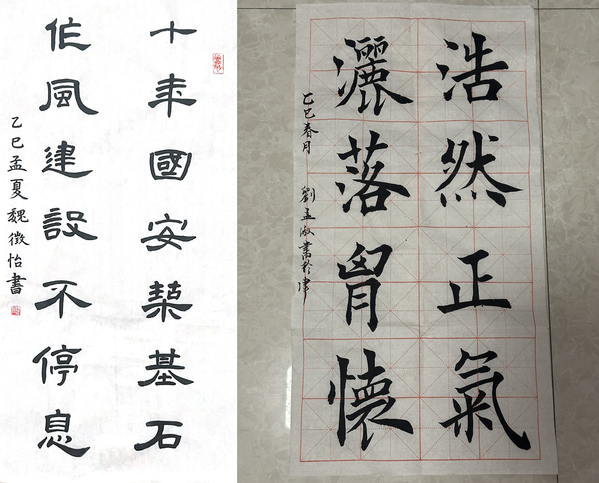 十年國安築基石
作風建設不停息
乙巳孟夏魏徵怡書
浩然正氣
灑落胷懷
乙巳春月 劉孟淑書於津